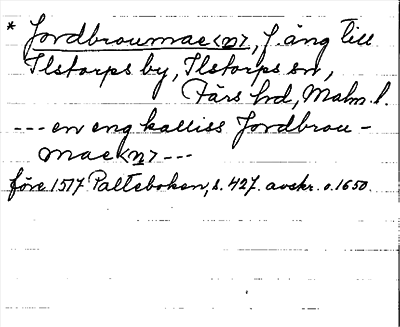 * Jordbroumae<n>, f. äng till
Ilstorps by, Ilstorps sn,
Färs hd, Malm. l.
--- en eng kalliss Jordbrou-
mae<n> ---
före 1517 Palteboken, s. 427. avskr. o. 1650.